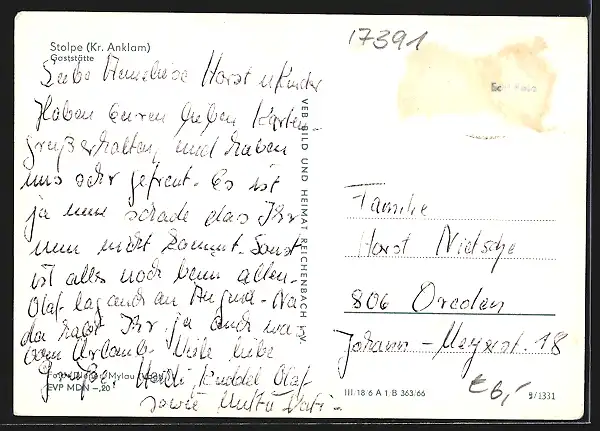 17391
Stolpe (Kr. Anklam)
Gaststätte
Liebe Anneliese Horst u Kinder
Haben euren lieben Karten-
gruß erhalten, und haben
uns sehr gefreut. Es ist
ja nur schade das Ihr
nun nicht kommt. Sonst
ist alles noch beim alten.
Olaf lag auch an Angina. Na
da habt Ihr ja auch was
vom Urlaub. Viele liebe
Grüße. Heidi Kuddel Olaf
sowie Mutti Vati.
EVP MDN -,20
VEB BILD UND HEIMAT REICHENBACH i. V.
Echt Foto
Familie
Horst Nietsche
806 Dresden
Johann-Meyerst. 18
III/18/6 A 1 B 363/66
9/1331
€6,-